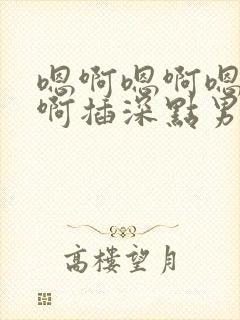 嗯啊嗯啊嗯
啊插深點男
高樓望月